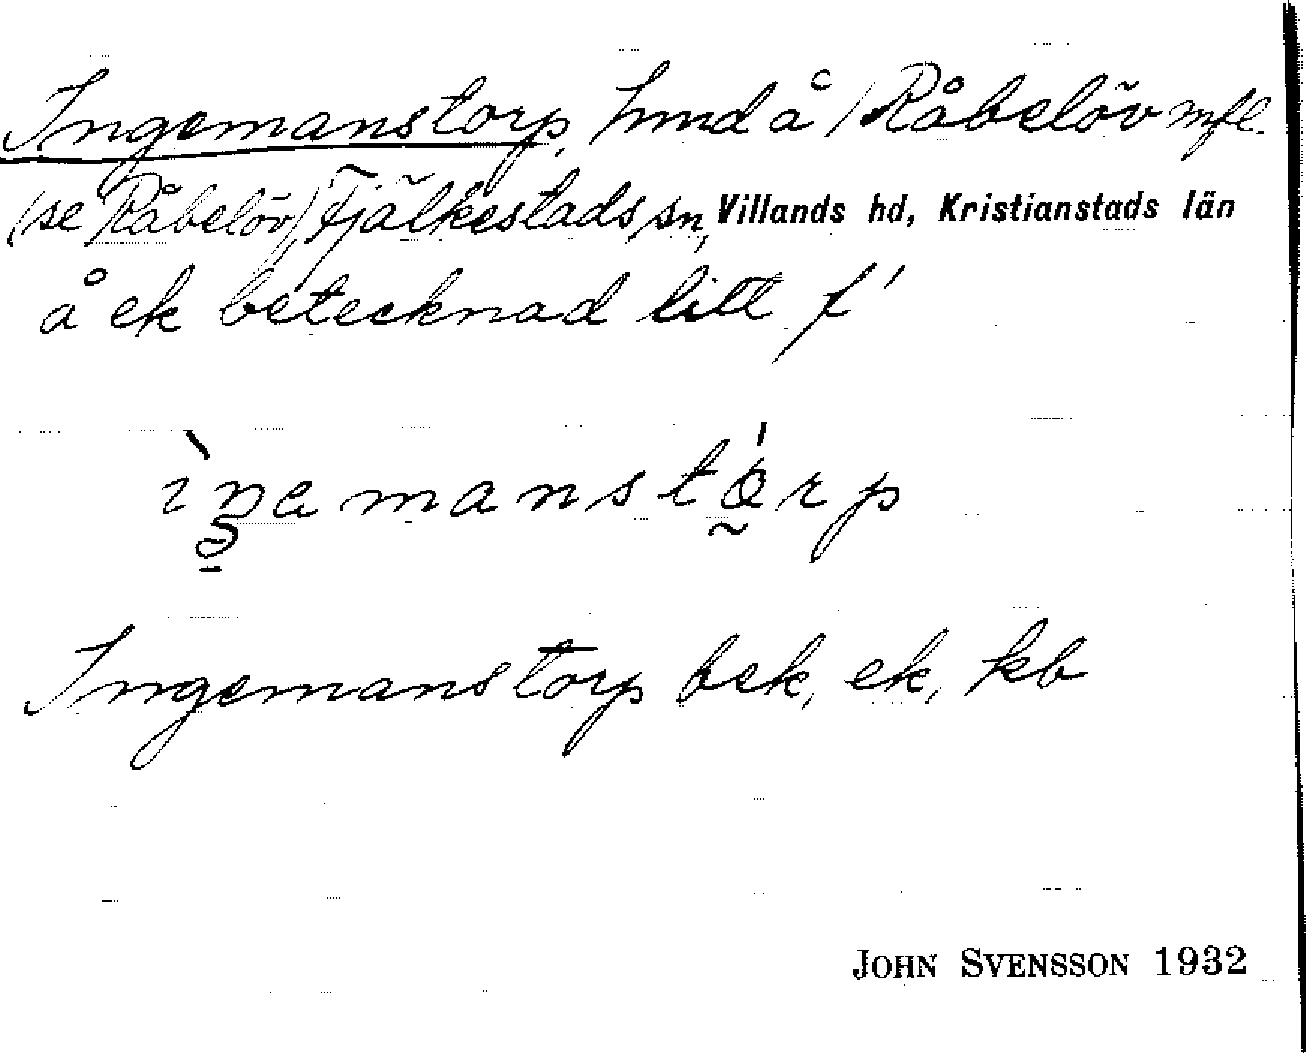 Ingemanstorp, hmd å /Råbelöv mfl.
(se Råbelöv) Fjälkestads sn, Villands hd, Kristianstads län
å ek betecknad litt f'
Ingemanstorp bek, ek, kb
JOHN SVENSSON 1932